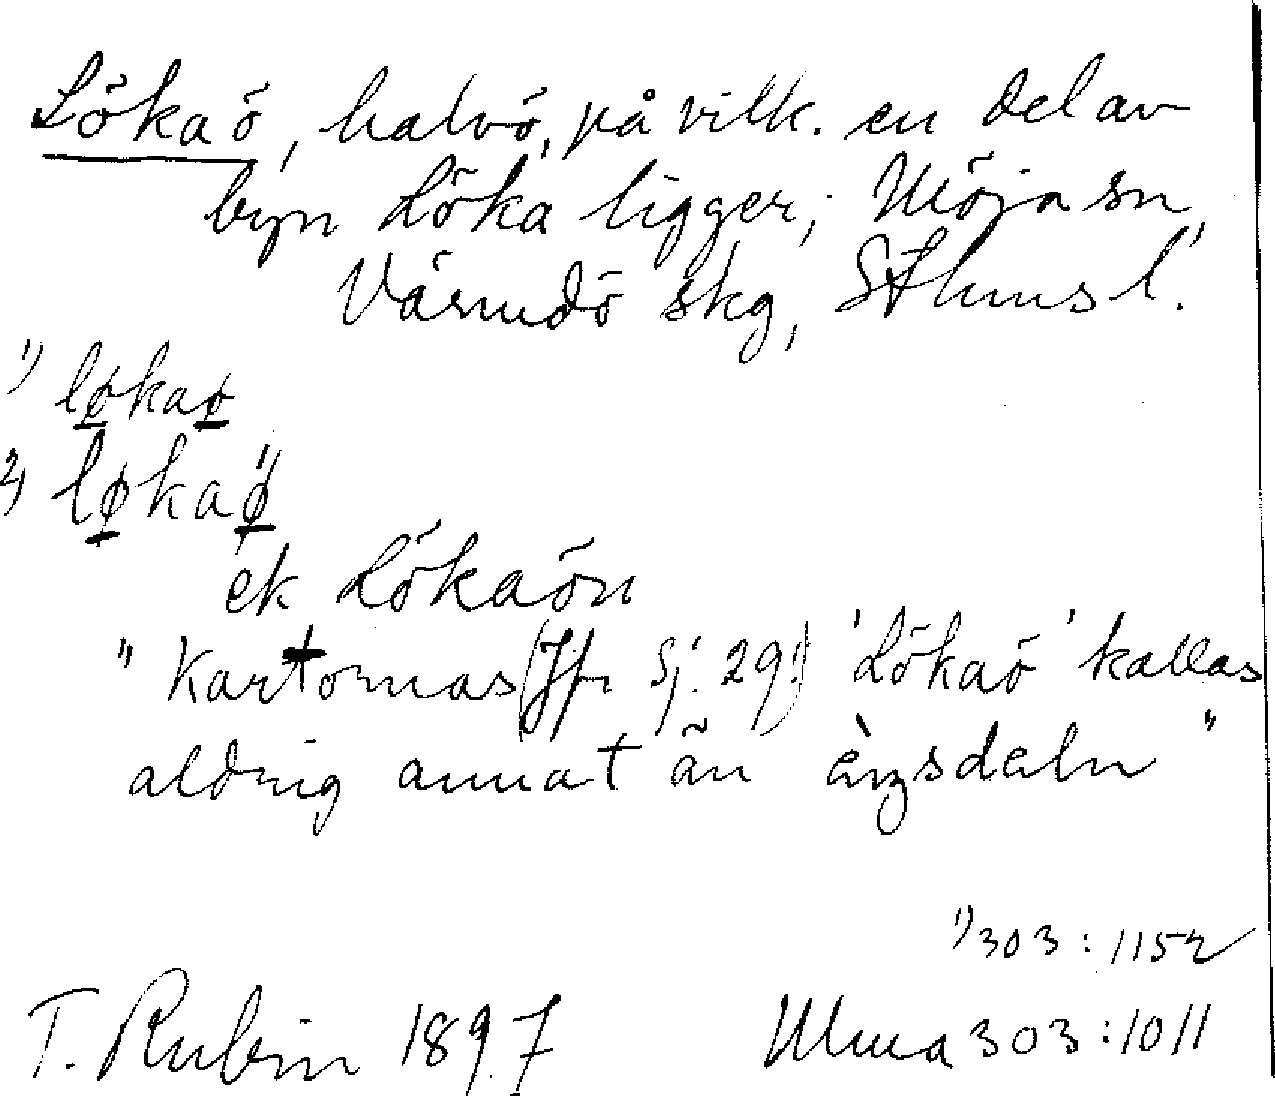 Lökaö, halvö, på vilk. en del av
byn Löka ligger; Möja sn,
Värmdö skg, Sthlms l.
1) løkaø
2) løkaø
ek Lökaön
"Kartornas (Jfr Sj. 29!) 'Lökaö' kallas
aldrig annat än
"
1) 303:1152
T. Rubin 1897 Ulma 303:1011